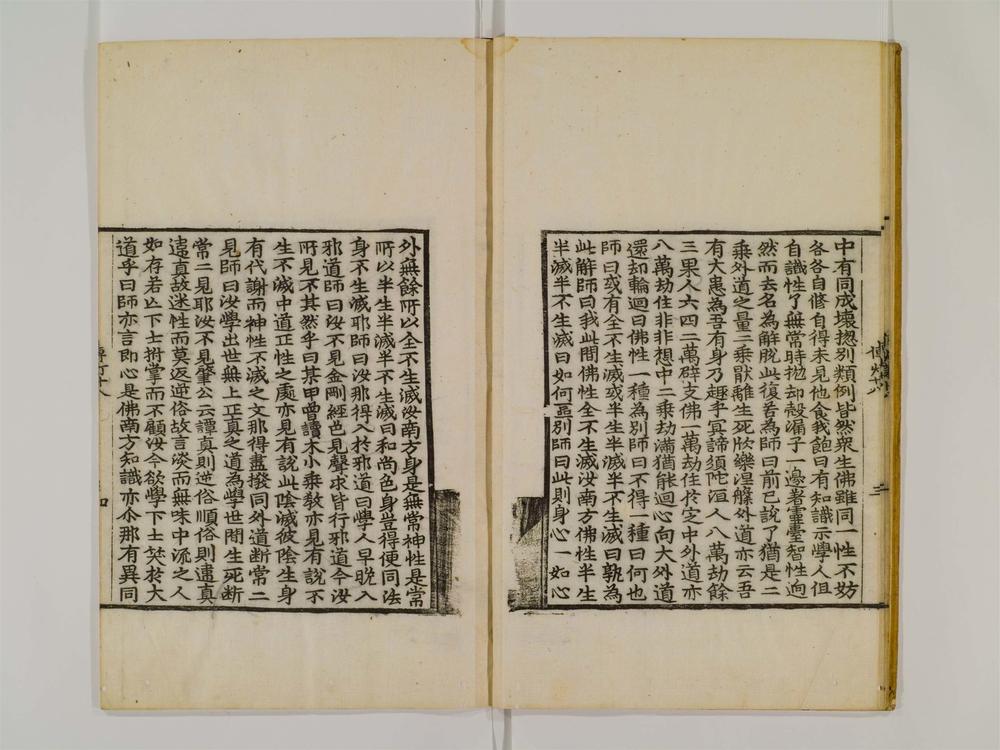 中有同成壞揔別類例皆然衆生佛雖同一性不妨
各各自修自得未見他食我飽曰有知識示學人但
自識性了無常時抛却殼漏子一邊著靈臺智性迥
然而去名為解脫此復若為師曰前已說了猶是二
乘外道之量二乘猒離生死欣樂涅槃外道亦云吾
有大患為吾有身乃趣乎冥諦須陀洹人八萬劫餘
三果人六四二萬辟支佛一萬劫住於定中外道亦
八萬劫住非非想中二乘劫滿猶能迴心向大外道
還却輪迴曰佛性一種為別師曰不得一種曰何也
師曰或有全不生滅或半生半滅半不生滅曰孰為
此解師曰我此間佛性全不生滅汝南方佛性半生
半滅半不生滅曰如何區別師曰此則身心一如心
外無餘所以全不生滅汝南方身是無常神性是常
所以半生半滅半不生滅曰和尚色身豈得便同法
身不生滅耶師曰汝那得入於邪道曰學人早晚入
邪道師曰汝不見金剛經色見聲求皆行邪道今汝
所見不其然乎曰某甲曾讀大小乘教亦見有說不
生不滅中道正性之處亦見有說此陰滅彼陰生身
有代謝而神性不滅之文那得盡撥同外道斷常二
見師曰汝學出世無上正真之道為學世間生死斷
常二見耶汝不見肇公云譚真則逆俗順俗則違真
違真故迷性而莫返逆俗故言淡而無味中流之人
如存若亡下士拊掌而不顧汝今欲學下士笑於大
道乎曰師亦言即心是佛南方知識亦尒那有異同